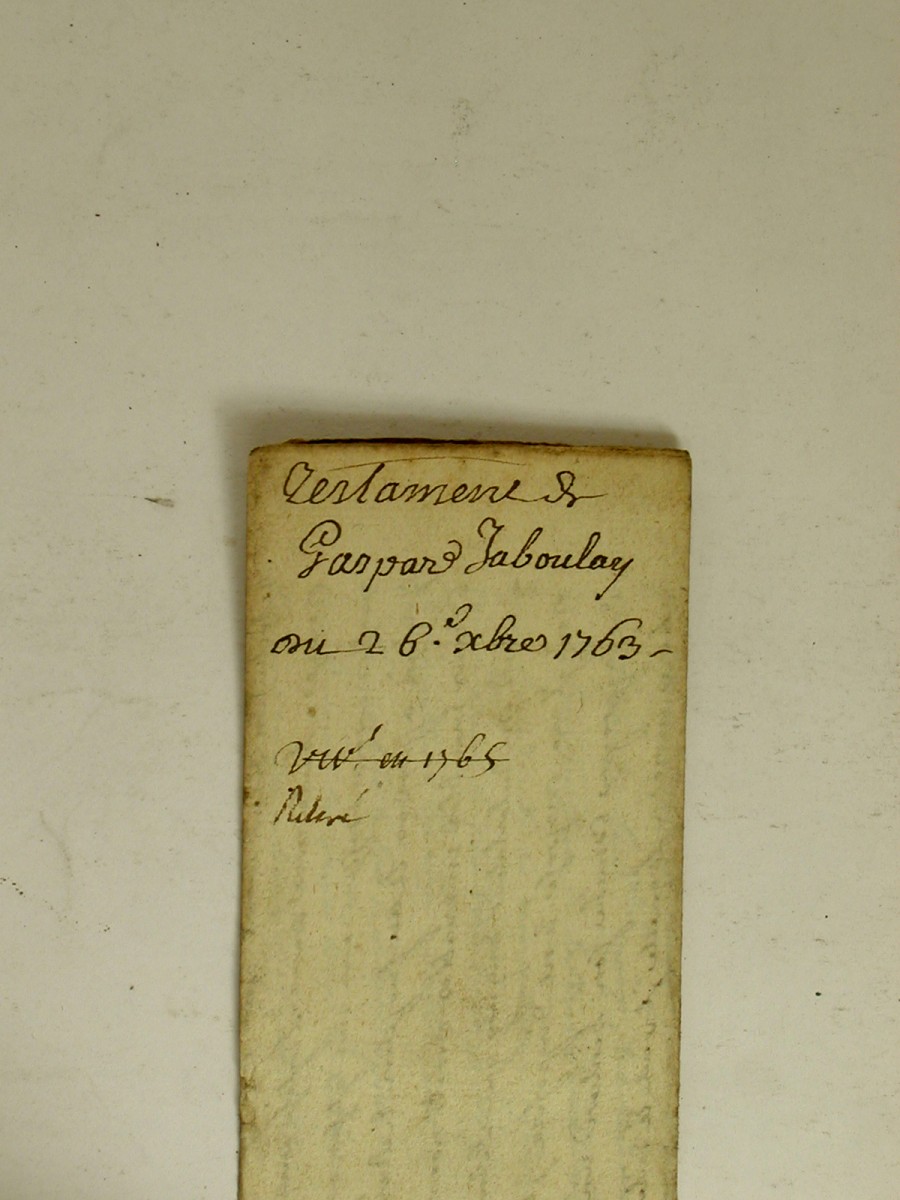 Testament de
Gaspard Jaboulay
du 26.e xbre 1763
en 1765
Relevé